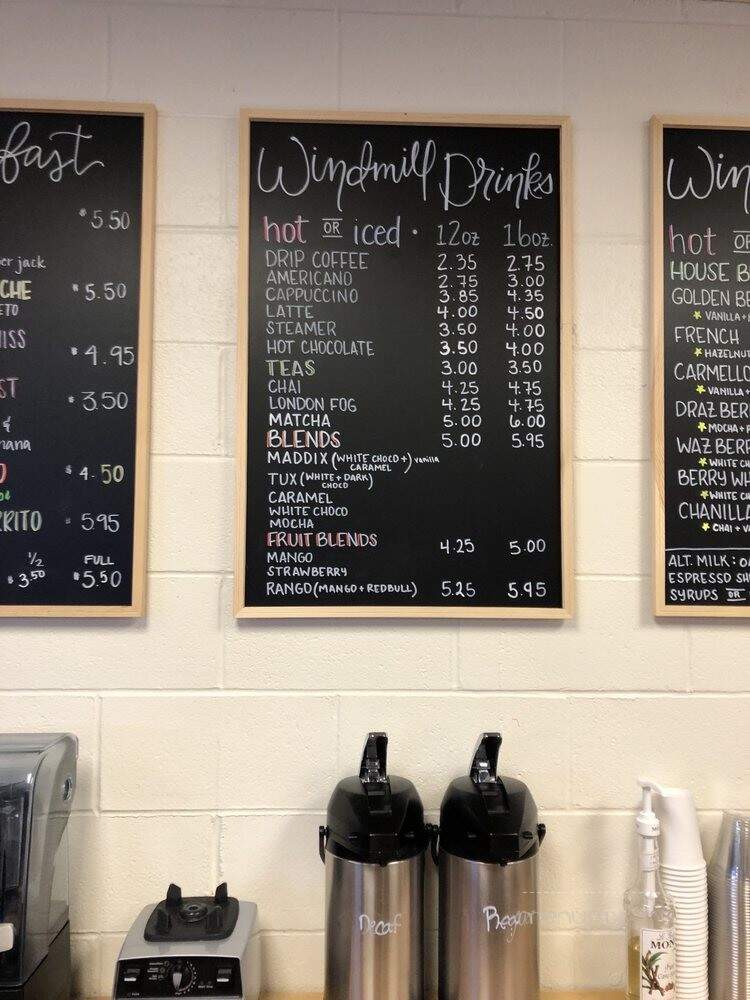 fast
$5.50
er jack
CHE $5.50
ETO
ISS
$4.95
ST $3.50
&
nana
O $4.50
RITO $5.95
1/2 FULL
$3.50 $5.50
Windmill Drinks
hot OR iced • 12oz 16oz.
DRIP COFFEE 2.35 2.75
AMERICANO 2.75 3.00
CAPPUCCINO 3.85 4.35
LATTE 4.00 4.50
STEAMER 3.50 4.00
HOT CHOCOLATE 3.50 4.00
TEAS 3.00 3.50
CHAI 4.25 4.75
LONDON FOG 4.25 4.75
MATCHA 5.00 6.00
BLENDS 5.00 5.95
MADDIX (WHITE CHOCO + CARAMEL) vanilla
TUX (WHITE + DARK CHOCO)
CARAMEL
WHITE CHOCO
MOCHA
FRUIT BLENDS 4.25 5.00
MANGO
STRAWBERRY
RANGO (MANGO + REDBULL) 5.25 5.95
Win
hot OR
HOUSE B
GOLDEN BE
VANILLA +
FRENCH
HAZELNUT
CARMELLO
VANILLA +
DRAZ BER
MOCHA +
WAZ BERR
WHITE CH
BERRY WH
WHITE C
CHANILLA
CHAI + VA
ALT. MILK: OA
ESPRESSO SH
SYRUPS OR
Decaf
Regular
MON